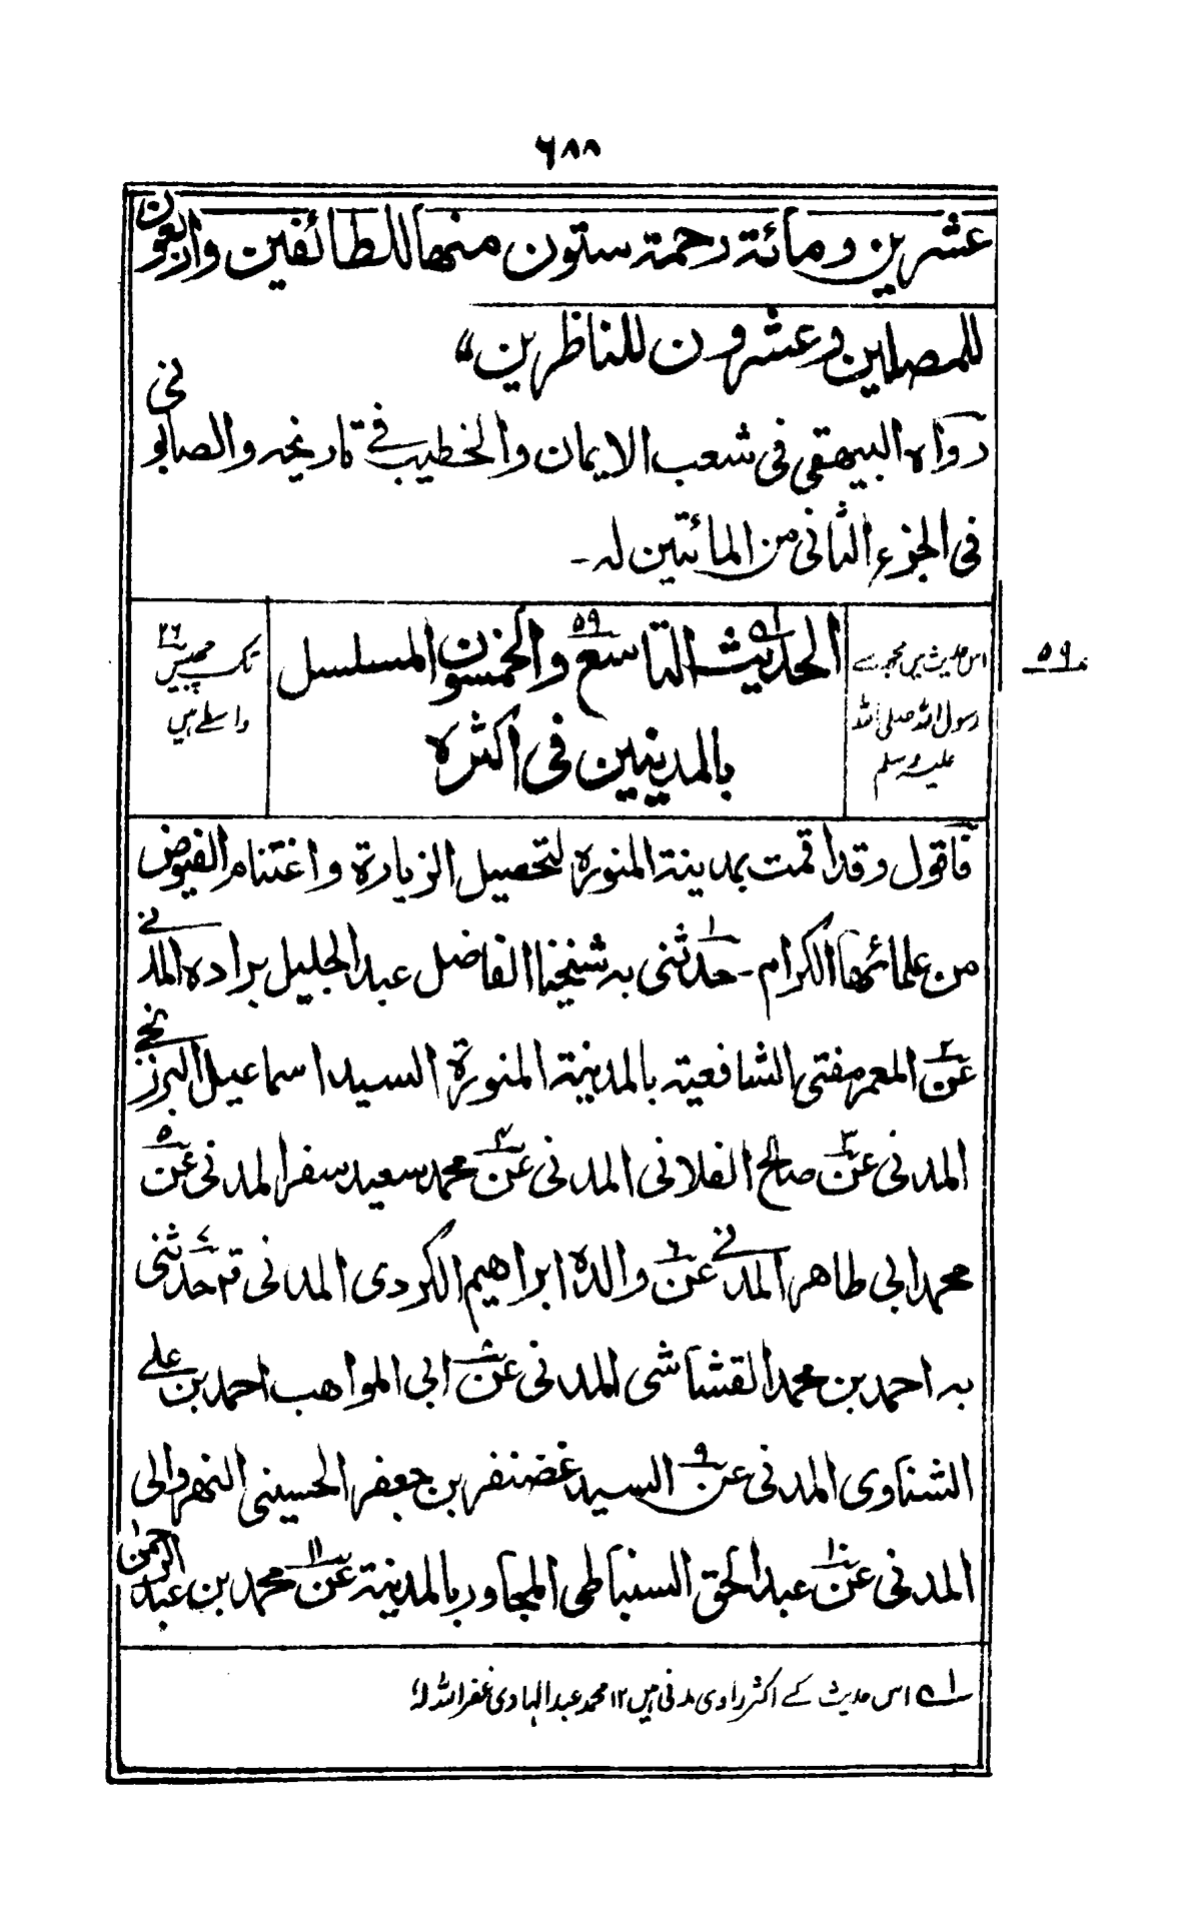 ٦٨٨
عشرين ومائة رحمة ستون منها للطائفين واربعون
للمصلين وعشرون للناظرين"
رواه البيهقى فى شعب الايمان والخطيب فى تاريخه والصابونى
فى الجزء الثانى من المائتين له ۔
۵۹
اس حدیث میں مجھ سے
رسول الله صلی الله
علیہ وسلم
الحديث ۱؎ التاسع ۵۹ والخمسون المسلسل
بالمدينين فى اكثره
تک چھبیس ۲۶
واسطے ہیں
فاقول وقد اقمت بمدينة المنورة لتحصيل الزيارة واغتنام الفيوض
من علمائها الكرام ۔ حدثنى ۱ به شيخنا الفاضل عبد الجليل براده المدنى
عن ۲ المعمر مفتى الشافعية بالمدينة المنورة السيد اسماعيل البرزنجى
المدنى عن ۳ صالح الفلانى المدنى عن ۴ محمد سعيد سفر المدنى عن ۵
محمد ابى طاهر المدنى عن ۶ والده ابراهيم الكردى المدنى قال حدثنى ۷
به احمد بن محمد القشاشى المدنى عن ۸ ابى المواهب احمد بن على
الشناوى المدنى عن ۹ السيد غضنفر بن جعفر الحسينى النهروالى
المدنى عن ۱۰ عبد الحق السنباطى المجاور بالمدينة عن ۱۱ محمد بن عبد الرحمن
۱؎ اس حدیث کے اکثر راوی مدنی ہیں ۱۲ محمد عبد الہادی غفر اللہ لہ